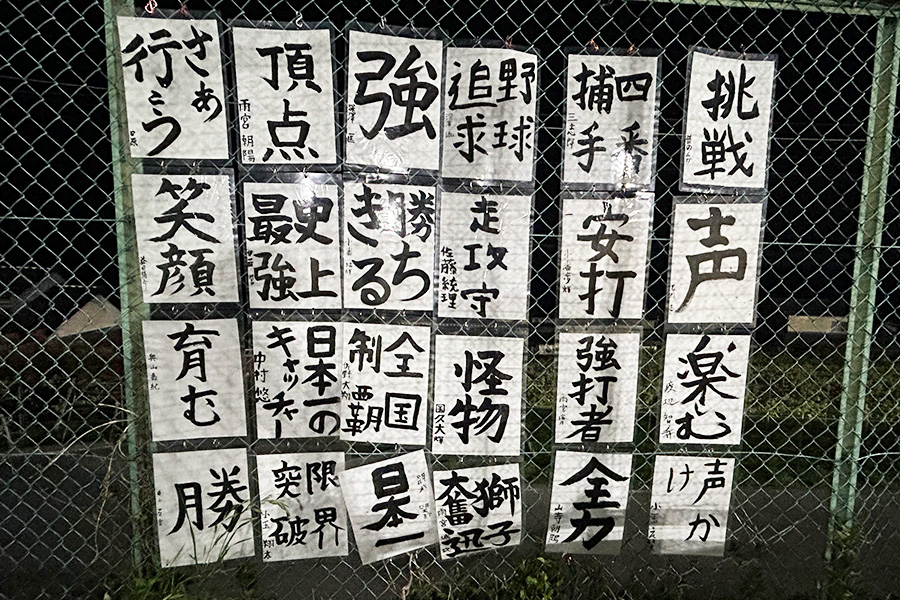 さあ
行こう
頂点
雨宮朝陽
強
野球
追求
四番
捕手
挑戦
笑顔
史上
最強
勝ち
きる
走攻守
佐藤統理
安打
声
育む
奥山
日本一の
キャッチャー
中村悠
全国
制覇
怪物
国久大輝
強打者
雨宮
楽しむ
勝
月
限界
突破
日本一
獅子
奮迅
雨宮
全力
声か
け